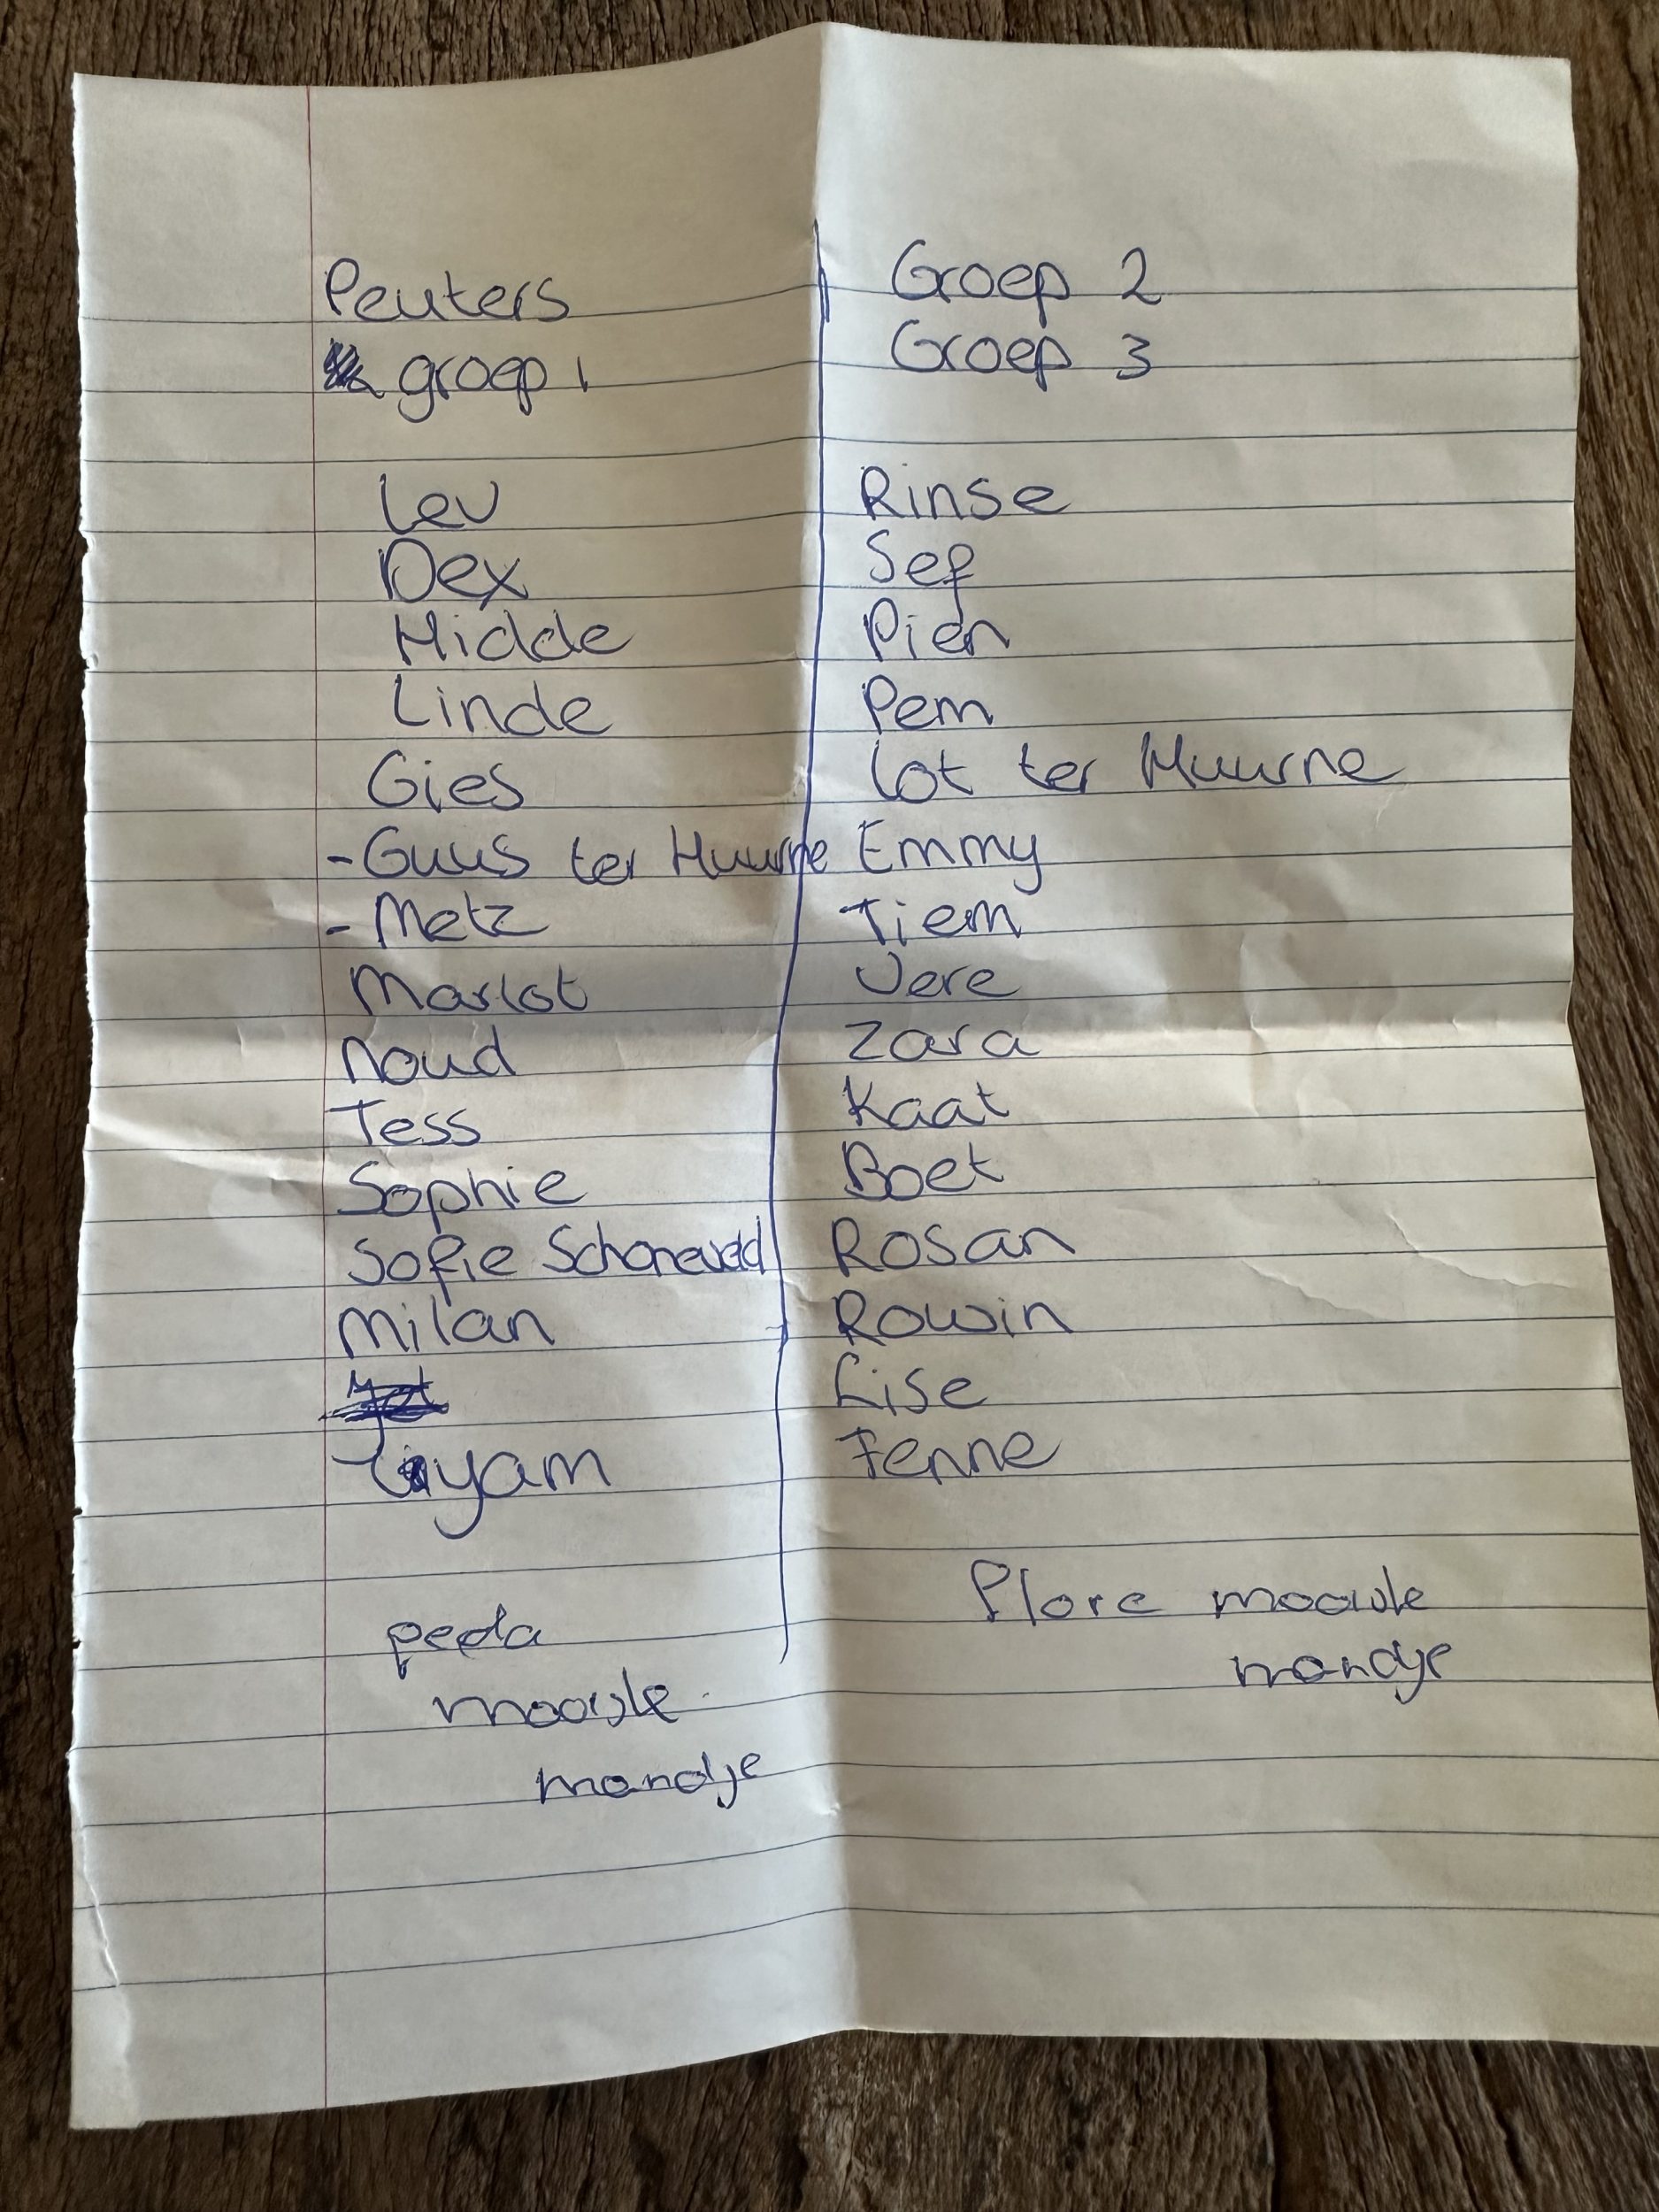 Peuters
groep 1
Lev
Dex
Hidde
Linde
Gies
- Guus ter Huurne
- Metz
Marlot
Noud
Tess
Sophie
Sofie Schoneveld
Milan
Liyam
peda
mooiste
mandje
Groep 2
Groep 3
Rinse
Sef
Pien
Pem
Lot ter Huurne
Emmy
Tiem
Vere
Zara
Kaat
Boet
Rosan
Rowin
Lise
Fenne
Flore mooiste
mandje